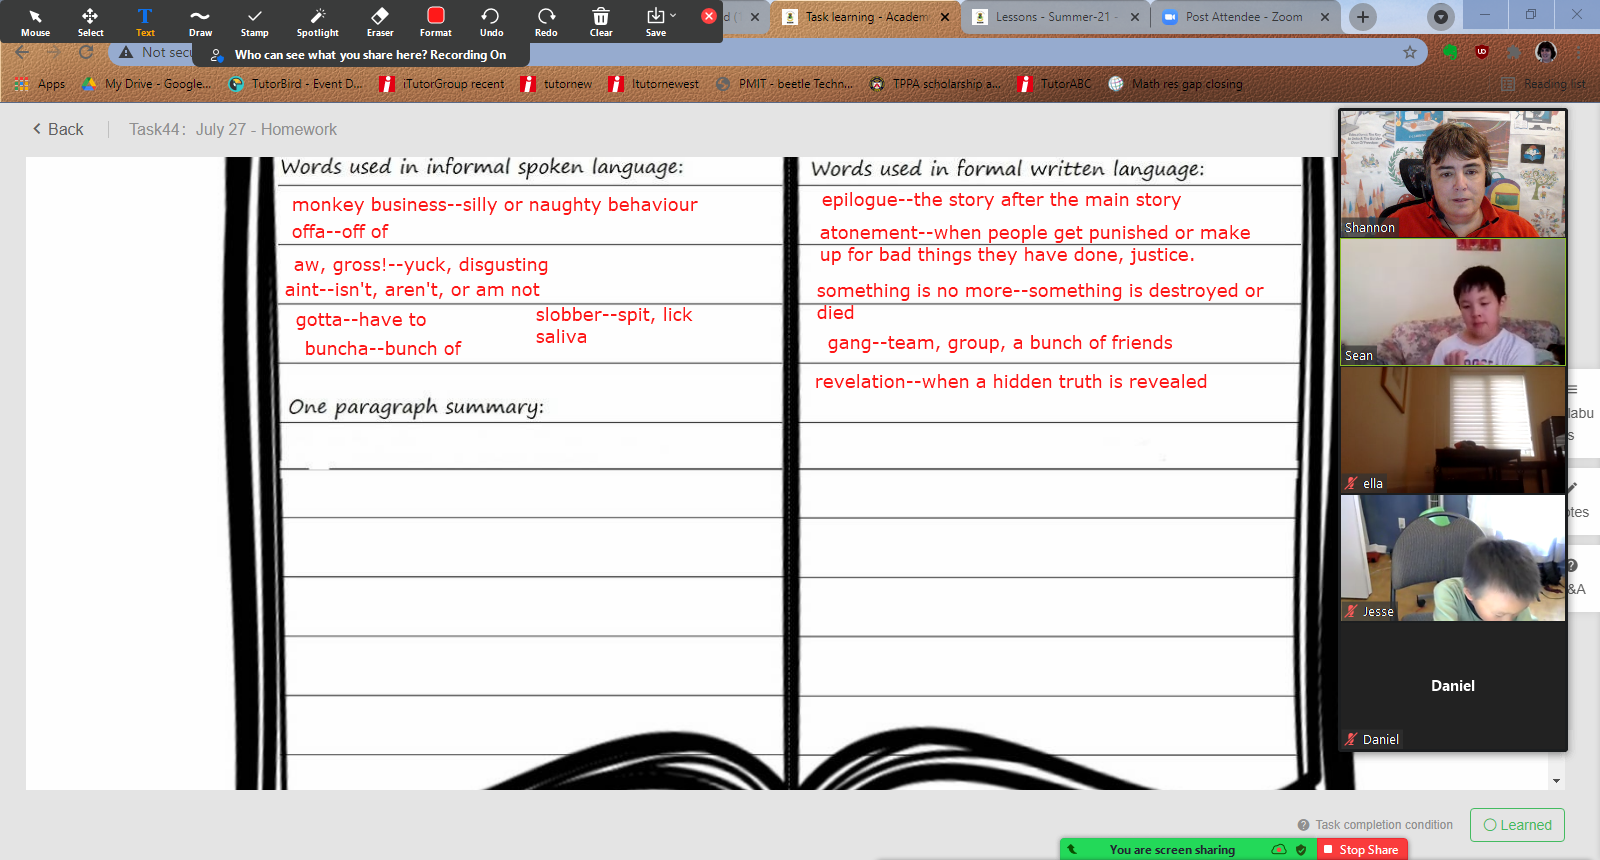 d (
Task learning - Academ
Lessons - Summer-21 -
Post Attendee - Zoom
Mouse
Select
Text
Draw
Stamp
Spotlight
Eraser
Format
Undo
Redo
Clear
Save
Not secu
Who can see what you share here? Recording On
Apps
My Drive - Google...
TutorBird - Event D...
iTutorGroup recent
tutornew
Itutornewest
PMIT - beetle Techn...
TPPA scholarship a...
TutorABC
Math res gap closing
Reading list
Back
Task44: July 27 - Homework
Words used in informal spoken language:
monkey business--silly or naughty behaviour
offa--off of
aw, gross!--yuck, disgusting
aint--isn't, aren't, or am not
gotta--have to
slobber--spit, lick
saliva
buncha--bunch of
One paragraph summary:
Words used in formal written language:
epilogue--the story after the main story
atonement--when people get punished or make
up for bad things they have done, justice.
something is no more--something is destroyed or
died
gang--team, group, a bunch of friends
revelation--when a hidden truth is revealed
Shannon
Sean
ella
Jesse
Daniel
Daniel
labu
s
otes
&A
Task completion condition
Learned
You are screen sharing
Stop Share